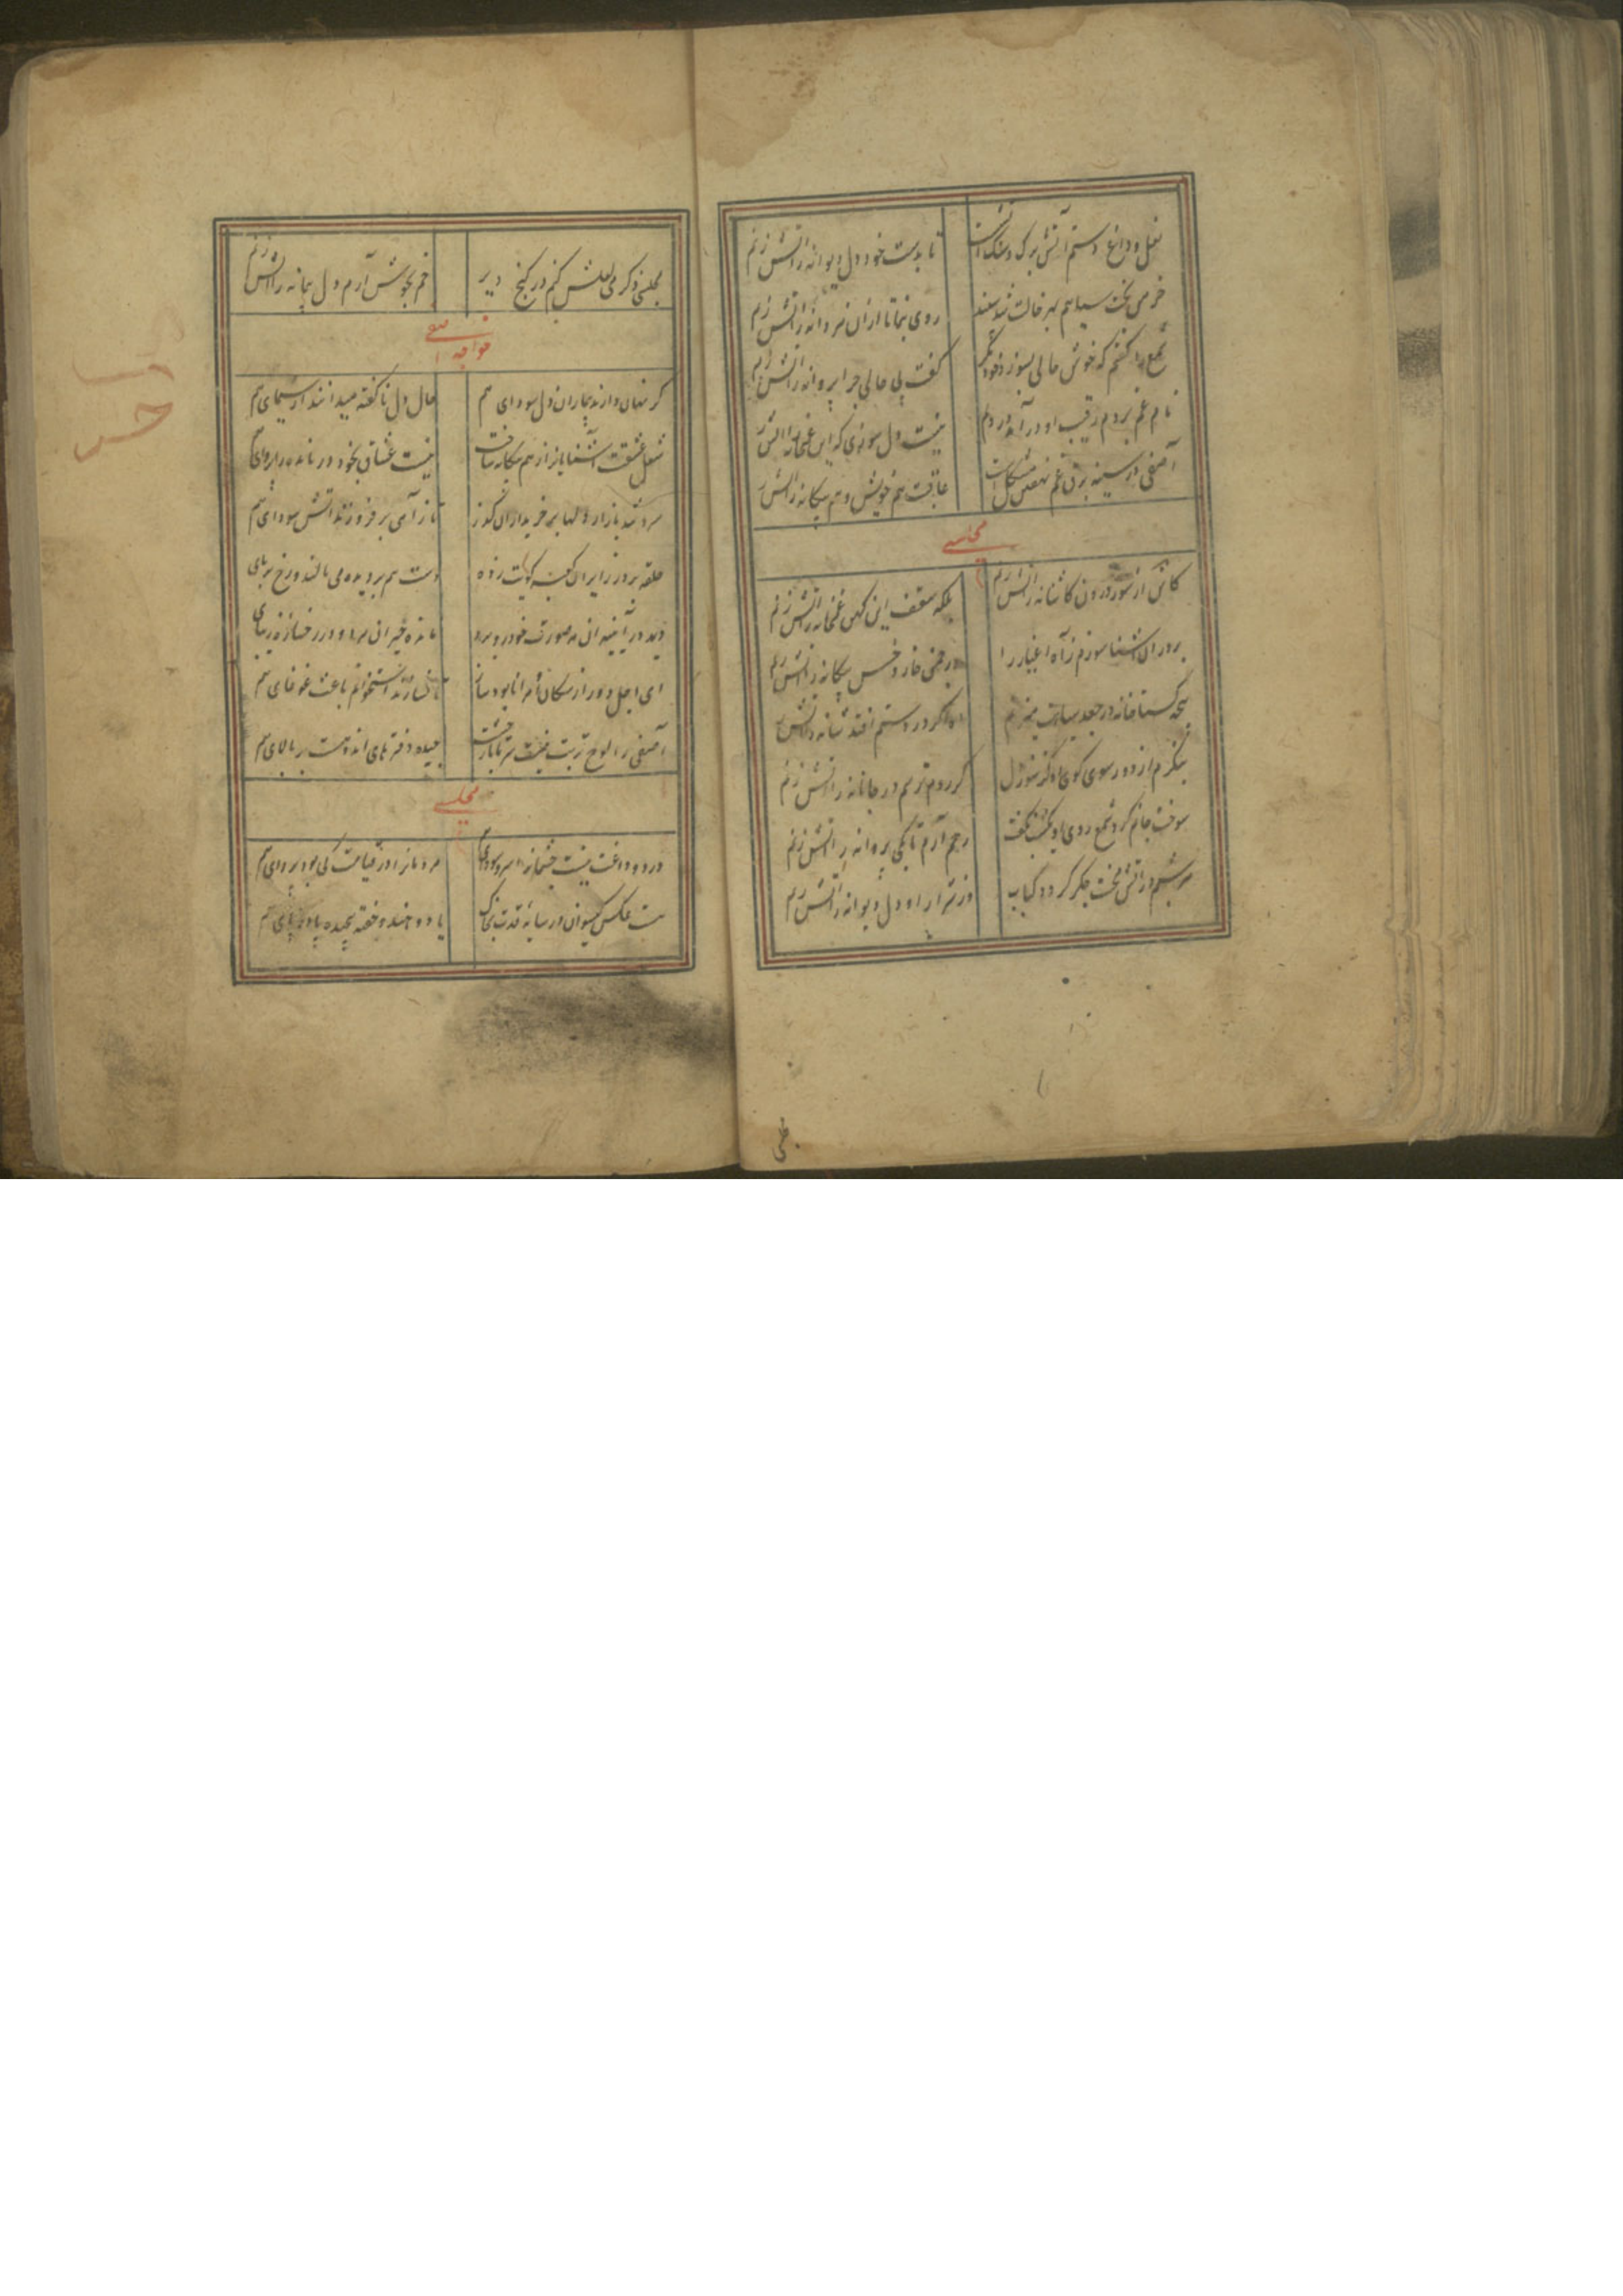 نعل و داغ دستم آتش برک و سنک آتش است تا بدست خود دل دیوانه را آتش زنم
خرمن بخت سیاهم بهر خالت شد سپند روی بنما تا ازان هر دانه را آتش زنم
شمع را گفتم که خوش حالی بسوز خود گفت بی حالی چرا پروانه را آتش زنم
نام غم بردم رقیب او در آمد از درم نیست دل سوزی که این غمخانه را آتش زنم
آصفی در سینه برق غم نهفتن مشکل است عاقبت هم خویش و هم بیکانه را آتش زنم
مجلسی
کاش از سوز درون کاشانه را آتش زنم بلکه سقف این کهن غمخانه را آتش زنم
بر در ان آشنا سوزم ز آه اغیار را در چمن خار و خس بیکانه را آتش زنم
پنجه کستاخانه در جعد سیاهت میزنم اه اکر در دستم افتد شانه را آتش زنم
بنکرم از دور سوی کوی او کز سوز دل کر روم ترسم در جانانه را آتش زنم
سوخت جانم کرد شمع روی او یکشب بگفت رحم آرم تا بکی پروانه را آتش زنم
هر شبم در آتش لخت جکر کردد کباب وز شرار اه دل دیوانه را آتش زنم
مجلسی
مجلسی ذکر می لعلش کنم در کنج دیر خم بجوش آرم دل پیمانه را آتش زنم
خواجه آصفی
کر نهان دارند بیماران دل سودای هم حال دل ناکفته میدانند از سیمای هم
شغل عشقت آشنایانرا ز هم بیکانه ساخت نیست عشاق بخود درمانده را پروای هم
سرد شد بازار دلها بر خریداران کذر تا ز آهی بر فروزند آتش سودای هم
حلقه بر در زایران کعبه کویت زده دست هم بر دیده می مالند و رخ بر پای هم
دید در آیینه ان مه صورت خود رو برو مانده حیران مه و در رخساره زیبای هم
ای اجل دور از سکان مرا نابود ساز تا نسازند استخوانم باعث غوغای هم
آصفی را لوح تربت نیست سر تا پا ز خشت چیده دفترهای اندوهست بر بالای هم
مجلسی
درد و داغت نیست چشمانرا سر و سودای هم مردمانرا در قیامت کی بود پروای هم
هست عکس کیسوان در سایه قدت بخاک یا دو هندو خفته پیچیده پا در پای هم